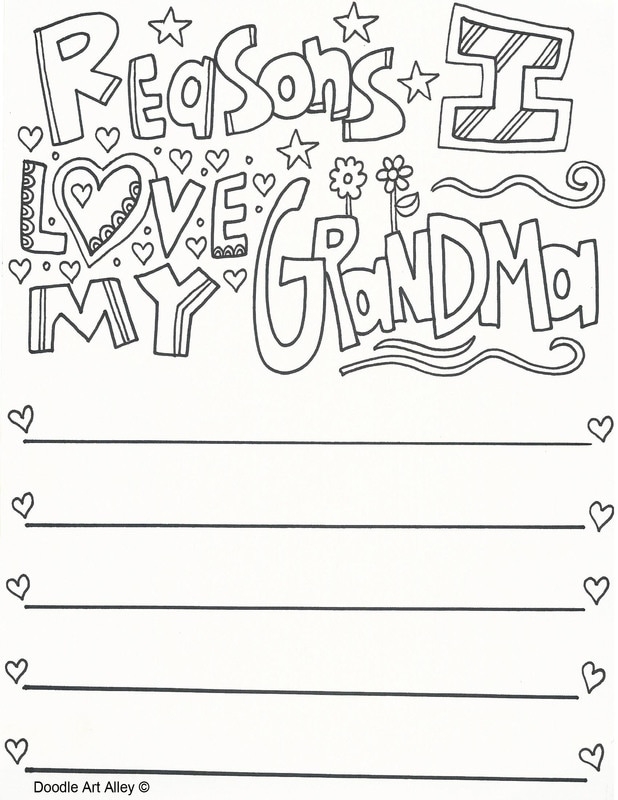 Reasons I
LOVE
MY GRaNDMa
Doodle Art Alley ©